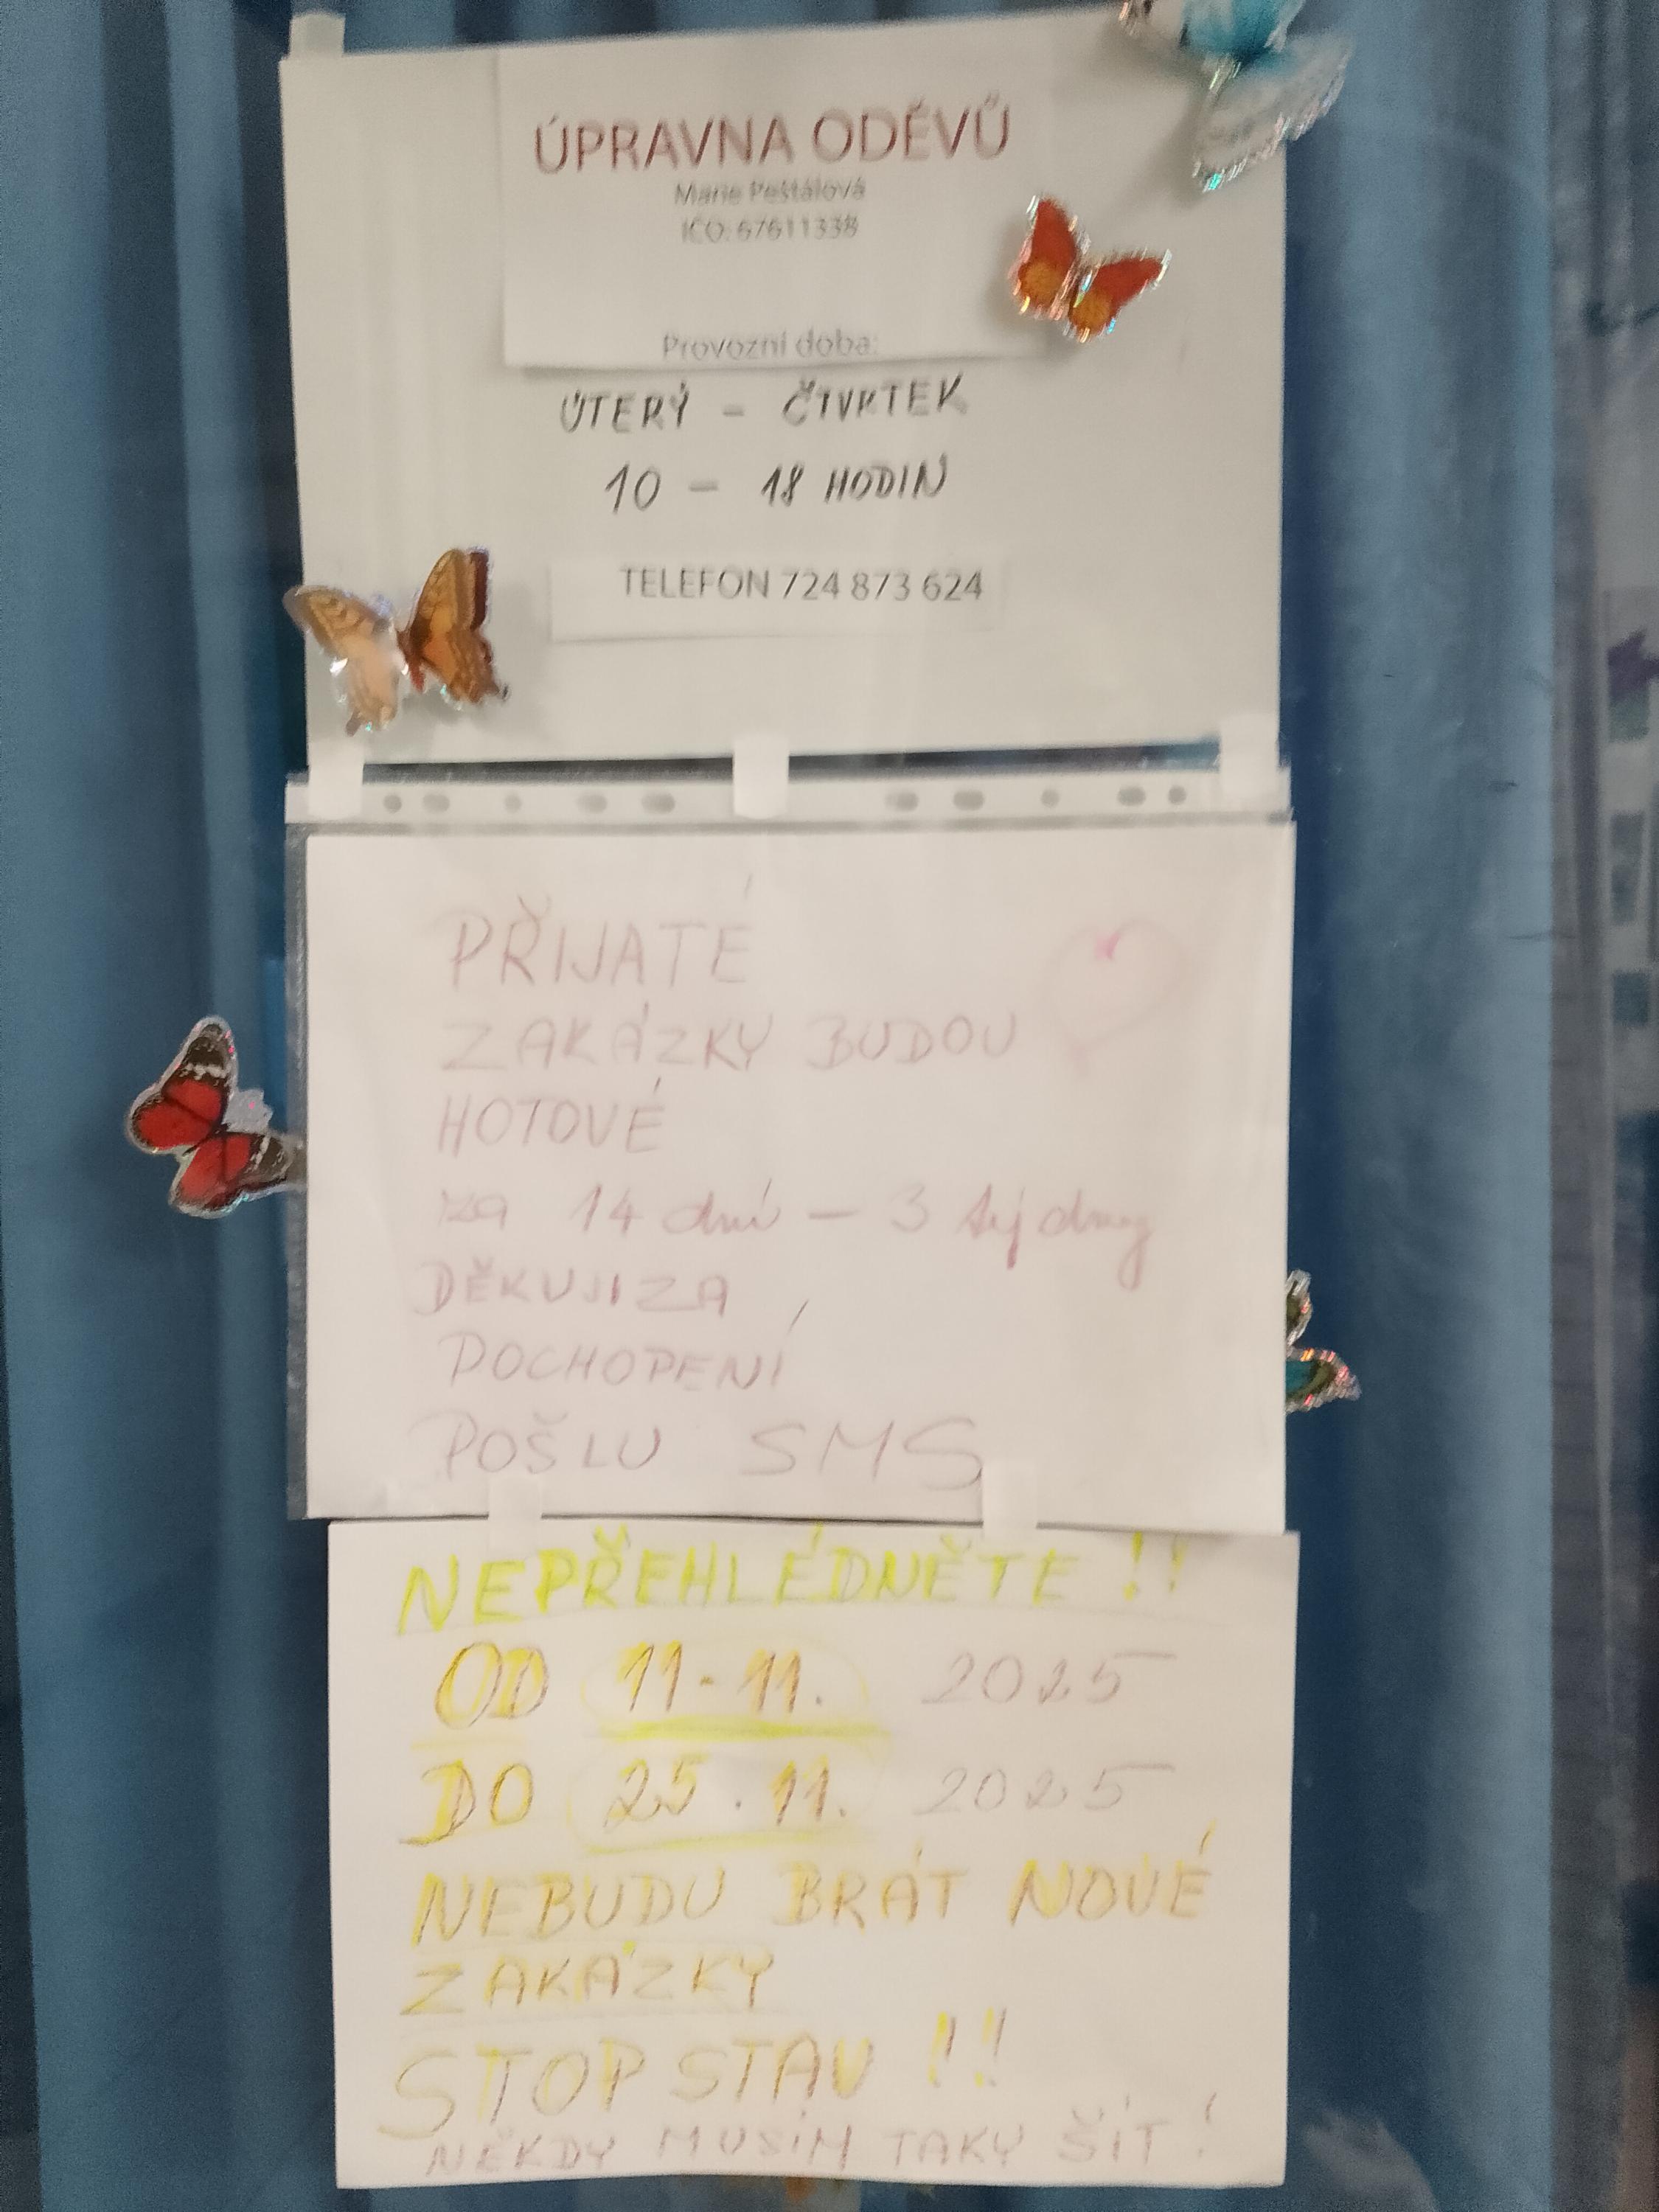 ÚPRAVNA ODĚVŮ
Marie Peštálová
IČO: 67611338
Provozní doba:
ÚTERÝ - ČTVRTEK
10 - 18 HODIN
TELEFON 724 873 624
PŘIJATÉ
ZAKÁZKY BUDOU
HOTOVÉ
za 14 dní - 3 týdny
DĚKUJI ZA
POCHOPENÍ
POŠLU SMS
NEPŘEHLÉDNĚTE !!
OD 11.11. 2025
DO 25.11. 2025
NEBUDU BRÁT NOVÉ
ZAKÁZKY
STOP STAV !!
NĚKDY MUSÍM TAKY ŠÍT!